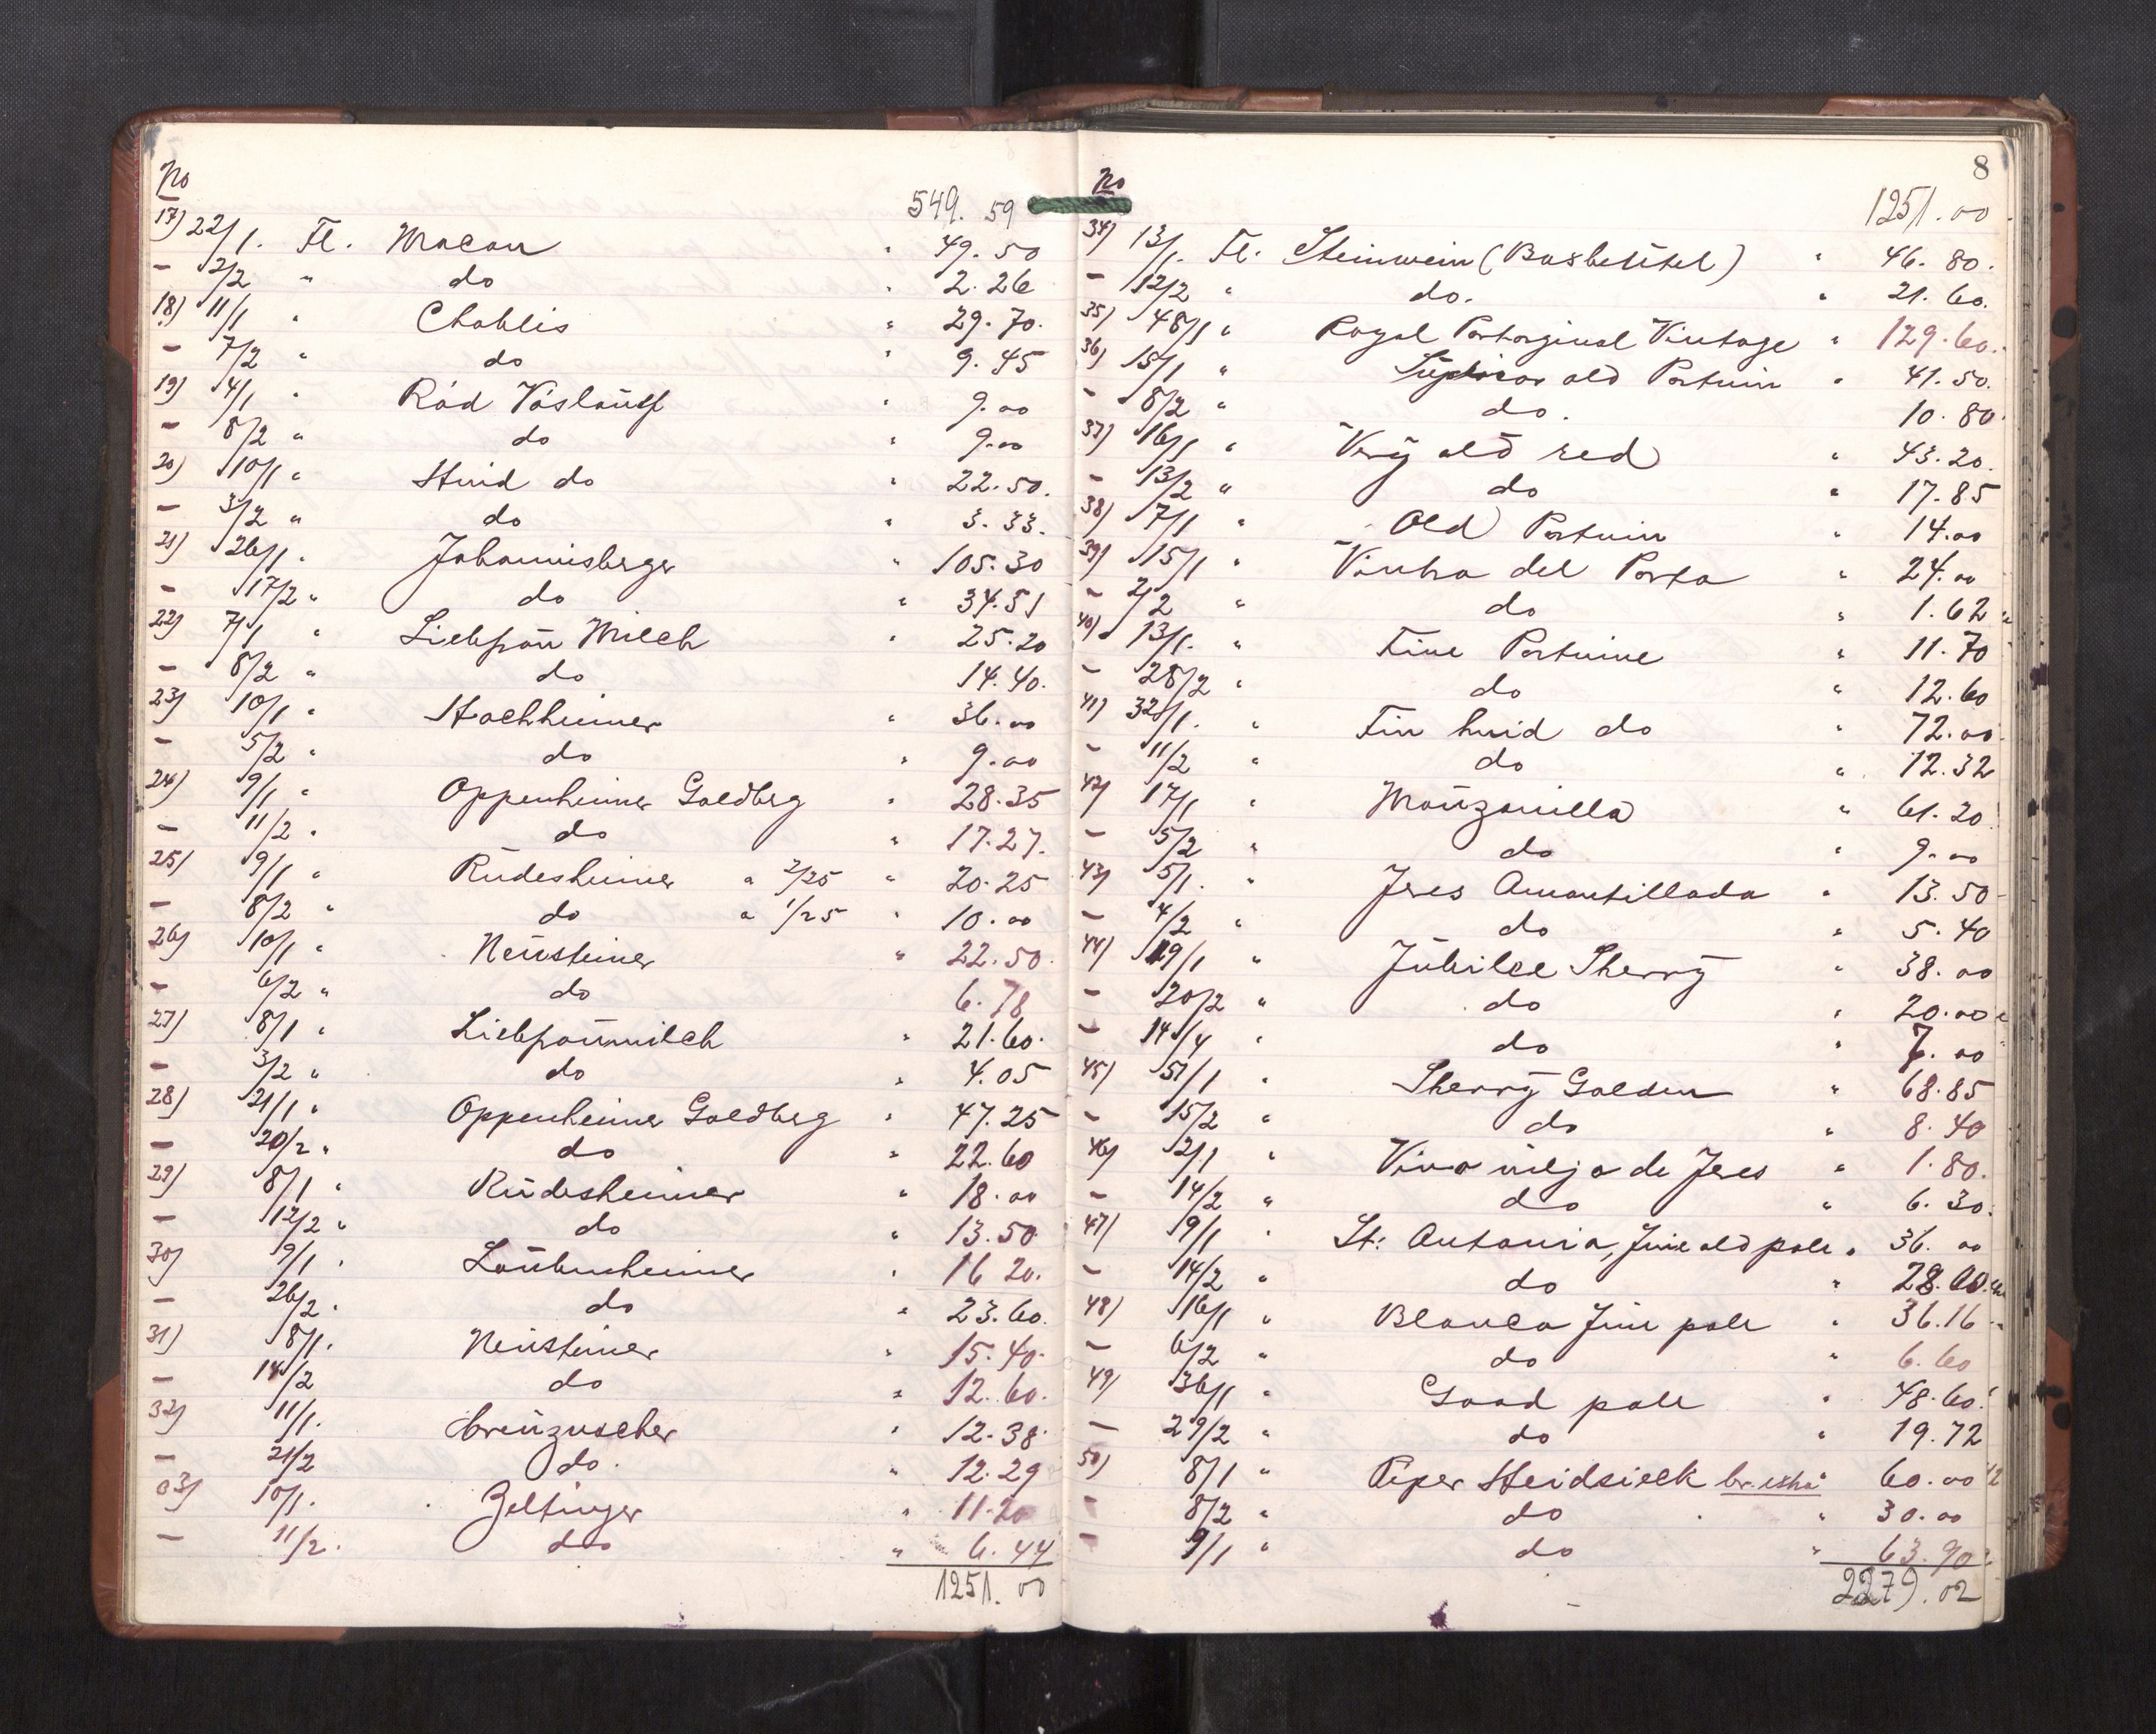 No
549. 59
17) 22/1. Fl. Macon " 49.50
- 2/2 " do " 2.26
18) 11/1 " Chablis " 29.70.
- 7/2 " do " 9.45
19) 4/1 " Röd Vöslauer " 9.00
- 8/2 " do " 9.00
20) 10/1 " Hvid do " 22.50.
- 3/2 " do " 3.33.
21) 26/1 " Johannisberger " 105.30
- 17/2 " do " 34.51
22) 7/1 " Liebfrau Milch " 25.20
- 8/2 " do 14.40.
23) 10/1 " Hochheimer " 36.00
- 5/2 " do " 9.00
24) 9/1 " Oppenheimer Goldberg " 28.35
- 11/2 " do " 17.27.
25) 9/1 " Rüdesheimer a 2/25 " 20.25
- 8/2 " do a 1/25 " 10.00
26) 10/1 " Neusteiner " 22.50.
- 6/2 " do 6.78
27) 8/1 " Liebfraumilch " 21.60.
- 3/2 " do " 4.05
28) 21/1 " Oppenheimer Goldberg " 47.25
- 20/2 " do " 22.60
29) 8/1 " Rüdesheimer " 18.00
- 12/2 " do " 13.50
30) 9/1 " Laubenheimer " 16 20.
- 26/2 " do " 23.60.
31) 8/1 " Neusteiner " 15.40.
- 14/2 do " 12.60.
32) 11/1. Creuznacher " 12.38.
- 21/2 do. " 12.29
33) 10/1. Zeltinger " 11.20
- 11/2. do " 6.44
1251. 00
8
No
1251.00
34) 13/1. Fl. Steinwein (Boxbeutel) " 46.80.
- 12/2 " do. " 21.60.
35) 48/1 " Royal Portorginal Vintage " 129.60.
36) 15/1 " Superior old Portvin " 41.50.
- 8/2 " do. 10.80.
37) 16/1 " Very old red " 43.20.
- 13/2 " do " 17.85
38) 7/1 " Old Portvin " 14.00
39) 15/1 " Vinho del Porto " 24.00
- 2/2 " do " 1.62
40) 13/1. " Fine Portvine " 11.70
- 28/2 " do " 12.60
41) 32/1. " Fin hvid do " 72.00
- 11/2 " do " 12.32
42) 17/1 " Manzanilla " 61.20
- 5/2 " do " 9.00
43) 5/1. " Jeres Amontillada " 13.50
- 4/2 " do " 5.40
44) 19/1 " Jubilee Sherry " 38.00
- 20/2 " do " 20.00
- 14/4 " do " 7.00
45) 51/1 " Sherry Golden " 68.85
- 15/2 " do " 8.40
46) 2/1 " Vino viejo de Jeres " 1.80.
- 14/2 " do " 6.30.
47) 9/1 " St: Antonia, fine old pale " 36. 00
- 14/2 " do " 28.00
48) 16/1 " Blanca fine pale " 36.16
- 6/2 " do " 6.60
49) 36/1 " Good pale " 48.60
- 29/2 " do " 19.72
50) 8/1 " Piper Heidsieck br. extra " 60.00
- 8/2 " do " 30.00
- 9/1 " do " 63.90
2279.02